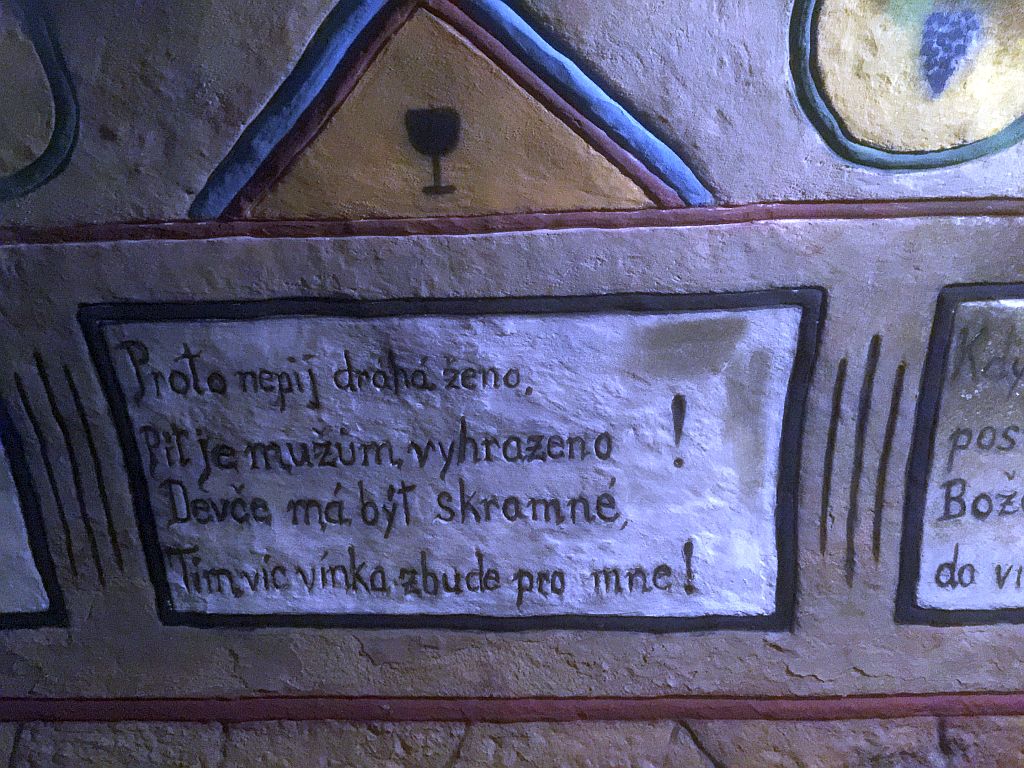 Proto nepij drahá ženo,
Pít je mužům, vyhrazeno !
Devče má být skramné,
Tím víc vínka zbude pro mne!
Kdy
pos
Bož
do